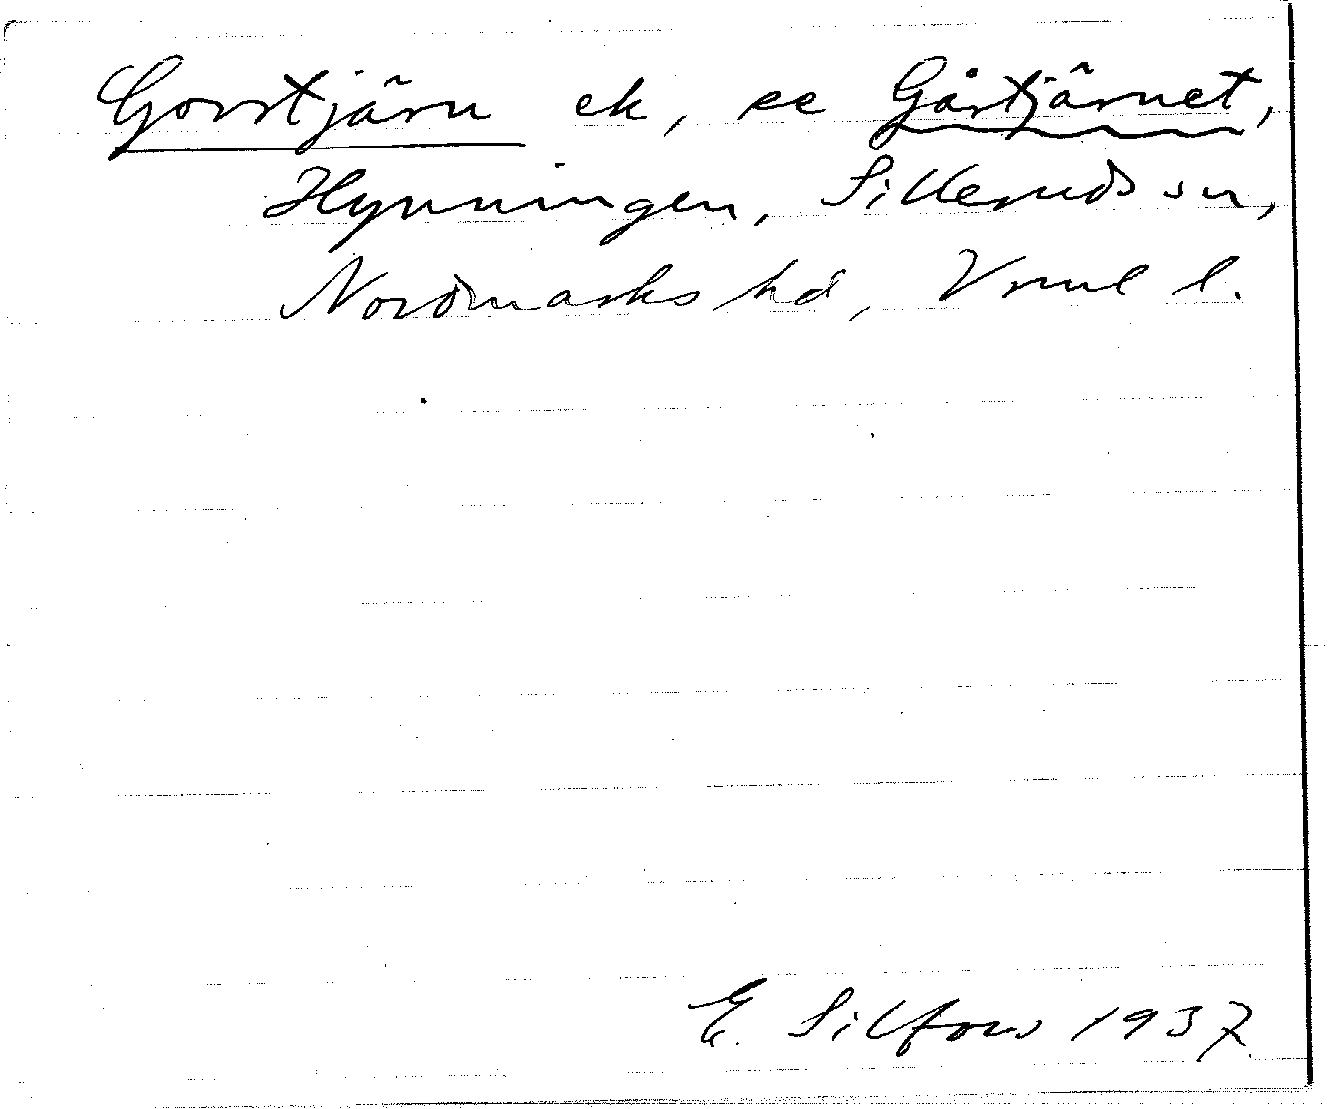 Gorrtjärn ek, se Gårtjärnet,
Hynningen, Silleruds sn,
Nordmarks hd, Vrml l.
E. Silfors 1937